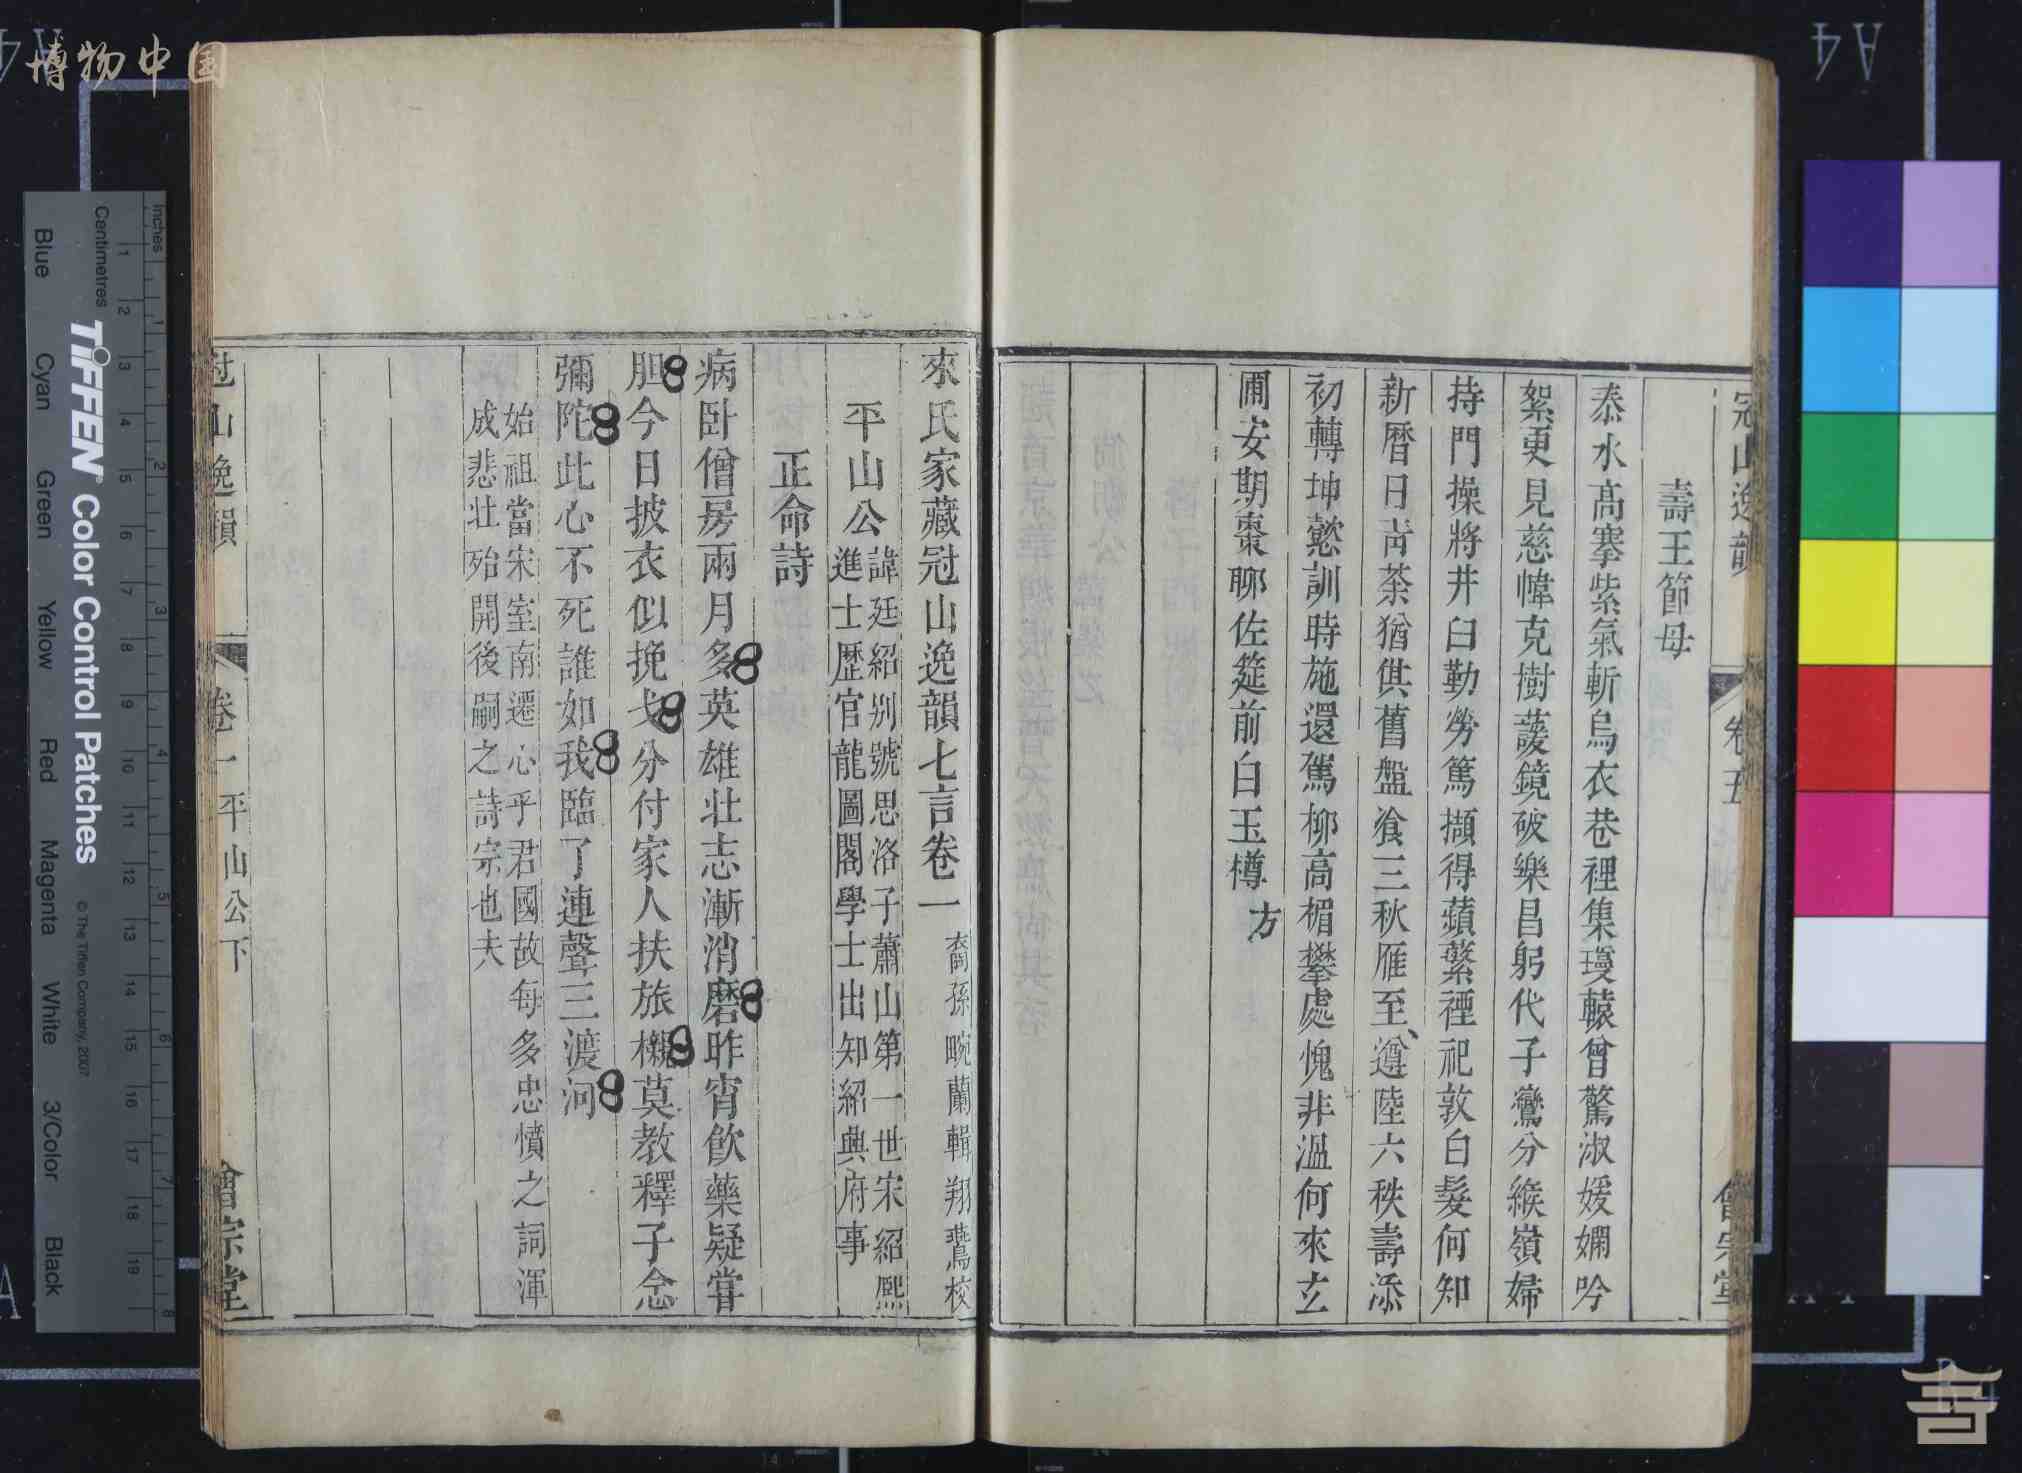 壽王節母
泰水高搴紫氣斬烏衣巷裡集瓊轅曾驚淑媛嫻吟
絮更見慈幃克樹諼鏡破樂昌躬代子鸞分緱嶺婦
持門操將井臼勤勞篤擷得蘋蘩禋祀敦白髮何知
新曆日靑茶猶供舊盤飡三秋雁至遵陸六秩壽添
初轉坤懿訓時施還罵柳高楣攀處愧非溫何來玄
圃安期棗聊佐筵前白玉樽 方
冠山逸韻 卷五 會宗堂
來氏家藏冠山逸韻七言卷一 裔孫畹蘭輯翔鷰校
平山公 諱廷紹别號思洛子蕭山第一世宋紹熙
進士歷官龍圖閣學士出知紹興府事
正命詩
病卧僧房兩月多英雄壯志漸消磨昨宵飮藥疑甞
胆今日披衣似挽戈分付家人扶旅櫬莫教釋子念
彌陀此心不死誰如我臨了連聲三渡河
始祖當宋室南遷心乎君國故每多忠憤之詞渾
成悲壯殆開後嗣之詩宗也夫
冠山逸韻 卷一 平山公下 會宗堂
博物中国
TIFFEN Color Control Patches
© The Tiffen Company, 2007
Inches
Centimetres
Blue Cyan Green Yellow Red Magenta White 3/Color Black
1 2 3 4 5 6 7 8 9 10 11 12 13 14 15 16 17 18 19
1 2 3 4 5 6 7 8
A4